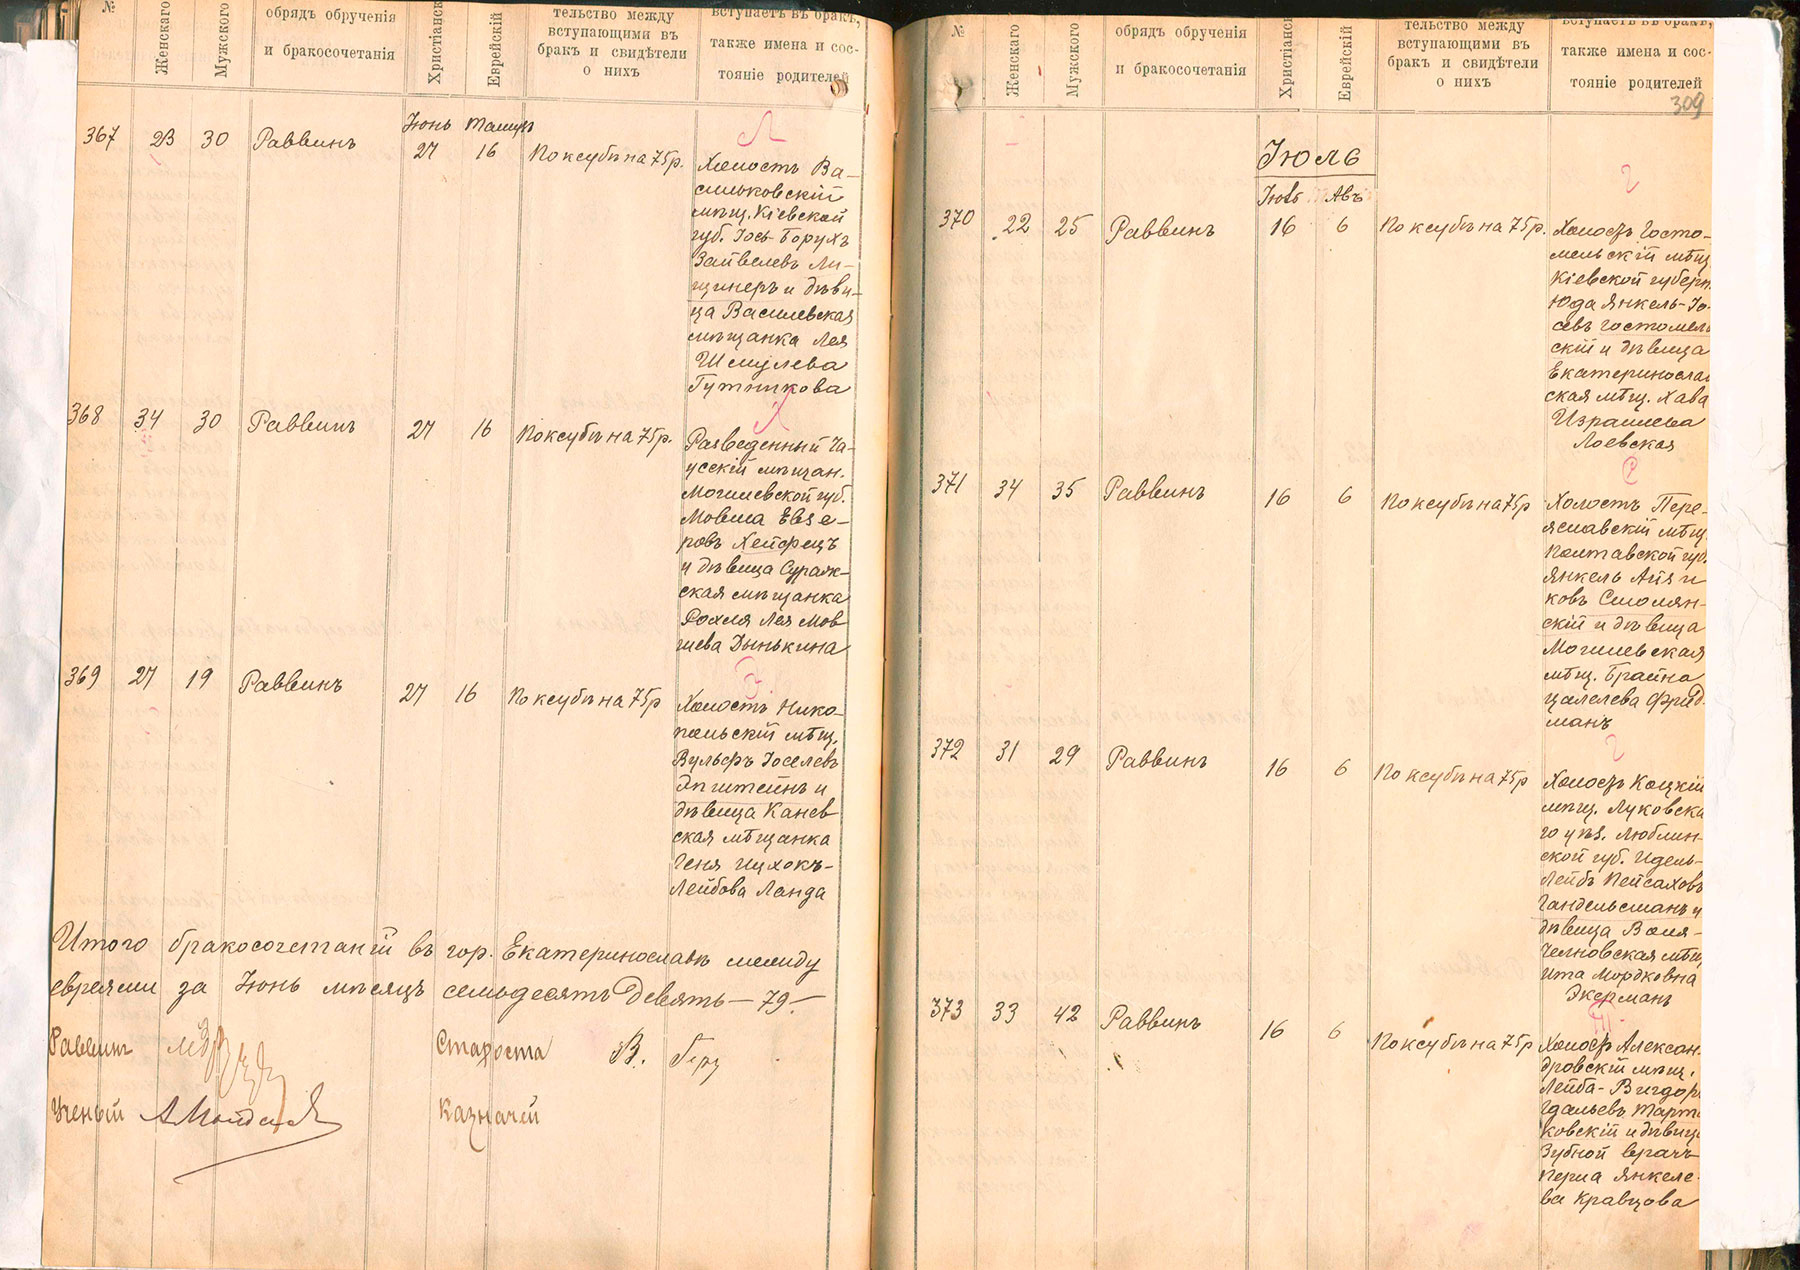 №
Женскаго
Мужского
обрядъ обрученія
и бракосочетанія
Христіанск
Еврейскій
тельство между
вступающими въ
бракъ и свидѣтели
о нихъ
вступаетъ въ бракъ,
также имена и сос-
тояніе родителей
Іюнь
367 23 30 Раввинъ 27 16 По ксубѣ на 75 р.
Л
Холостъ Ва-
сильковскій
мѣщ. Кіевской
губ. Іось-Борухъ
Зайвелевъ Ли-
щинеръ и дѣви-
ца Василевская
мѣщанка Лея
Шмулева
Гутникова
368 34 30 Раввинъ 27 16 По ксубѣ на 75 р.
Х
Разведенный Ча-
усскій мѣщан.
Могилевской губ.
Мовша Евзе-
ровъ Хейфецъ
и дѣвица Сураж-
ская мѣщанка
Рохля Лея Мов
шева Дынькина
369 27 19 Раввинъ 27 16 По ксубѣ на 75 р
Э
Холостъ Нико-
польскій мѣщ.
Вульфъ Іоселевъ
Эпштейнъ и
дѣвица Канев
ская мѣщанка
Геня Ицхокъ-
Лейбова Ланда
Итого бракосочетаній въ гор. Екатеринославѣ между
евреями за Іюнь мѣсяцъ семьдесятъ девять — 79 —
Раввинъ
Староста В.
Ученый
Казначей
№
Женскаго
Мужского
обрядъ обрученія
и бракосочетанія
Христіанск
Еврейскій
тельство между
вступающими въ
бракъ и свидѣтели
о нихъ
вступаетъ въ бракъ,
также имена и сос-
тояніе родителей
309
Іюль
Авъ
370 22 25 Раввинъ 16 6 По ксубѣ на 75 р.
Г
Холостъ Госто-
мельскій мѣщ
Кіевской губерн.
Юда Янкель-Іо-
севъ Гостомель
скій и дѣвица
Екатеринослав
ская мѣщ. Хава
Израилева
Лоевская
371 34 35 Раввинъ 16 6 По ксубѣ на 75 р
С
Холостъ Пере-
яславскій мѣщ.
Полтавской губ.
Янкель Айзи
ковъ Смолян-
скій и дѣвица
Могилевская
мѣщ. Брайна
Цалелева Фрид-
манъ
372 31 29 Раввинъ 16 6 По ксубѣ на 75 р
Г
Холостъ Коцкій
мѣщ. Луковска
го уѣз. Люблин-
ской губ. Идель-
Лейбъ Пейсаховъ
Гандельсманъ и
дѣвица Воля-
Челновская мѣщ
Ита Мордковна
Экерманъ
373 33 42 Раввинъ 16 6 По ксубѣ на 75 р
Т
Холостъ Алексан-
дровскій мѣщ.
Лейба-Вигдоръ
Гдальевъ Тарта
ковскій и дѣвица
Зубной врачъ
Перла Янкеле-
ва Кравцова